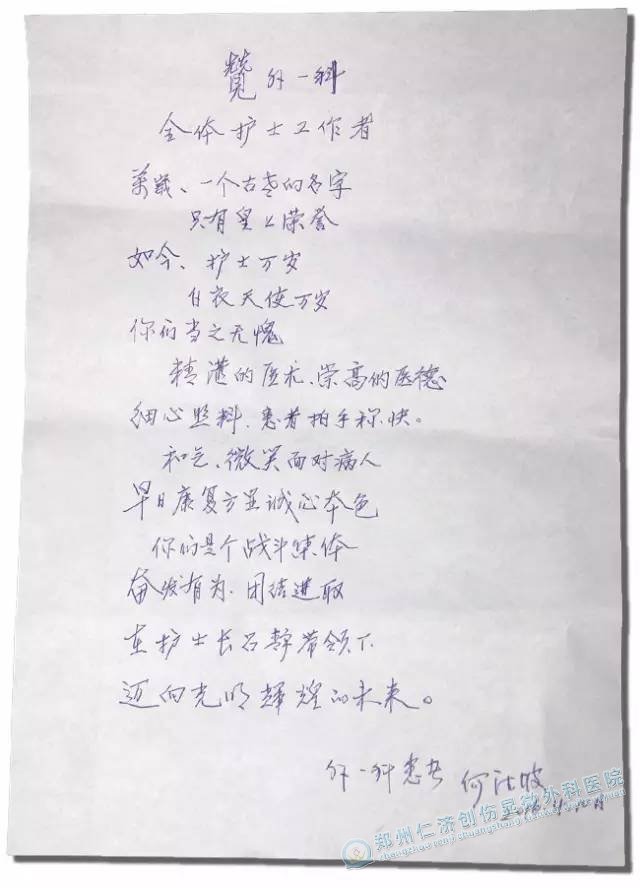 赞外一科
全体护士工作者
万岁、一个古老的名字
只有皇上荣誉
如今、护士万岁
白衣天使万岁
你们当之无愧
精湛的医术、崇高的医德
细心照料、患者拍手称快。
和气、微笑面对病人
早日康复方显诚心本色
你们是个战斗集体
奋发有为、团结进取
在护士长石静带领下
迈向光明辉煌的未来。
外一科患者 何
郑州仁济创伤显微外科医院
zhengzhou renji chuangshang xianwei waike yiyuan